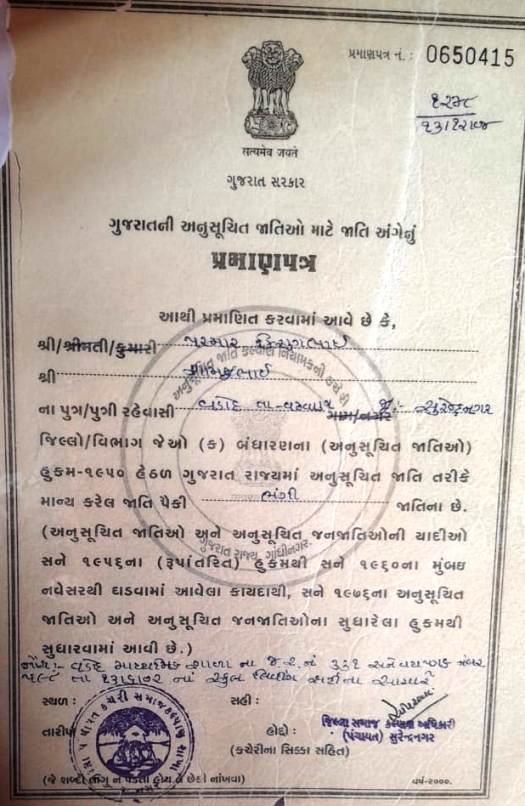 પ્રમાણપત્ર નં. : 0650415
सत्यमेव जयते
ગુજરાત સરકાર
ગુજરાતની અનુસૂચિત જાતિઓ માટે જાતિ અંગેનું
પ્રમાણપત્ર
આથી પ્રમાણિત કરવામાં આવે છે કે,
શ્રી/શ્રીમતી/કુમારી પરમાર
શ્રી
ના પુત્ર/પુત્રી રહેવાસી ગામ/નગર જી:- સુરેન્દ્રનગર
જિલ્લો/વિભાગ જેઓ (ક) બંધારણના (અનુસૂચિત જાતિઓ)
હુકમ-૧૯૫૦ હેઠળ ગુજરાત રાજ્યમાં અનુસૂચિત જાતિ તરીકે
માન્ય કરેલ જાતિ પૈકી ભંગી જાતિના છે.
(અનુસૂચિત જાતિઓ અને અનુસૂચિત જનજાતિઓની યાદીઓ
સને ૧૯૫૬ના (રૂપાંતરિત) હુકમથી સને ૧૯૬૦ના મુંબઇ
નવેસરથી ઘડવામાં આવેલા કાયદાથી, સને ૧૯૭૬ના અનુસૂચિત
જાતિઓ અને અનુસૂચિત જનજાતિઓના સુધારેલા હુકમથી
સુધારવામાં આવી છે.)
નોંધ:- માધ્યમિક શાળા ના જ.ર.નં ૩૩૨ અને
સ્થળ : સહી :
તારીખ હોદ્દો : જિલ્લા સમાજ કલ્યાણ અધિકારી
(પંચાયત) સુરેન્દ્રનગર
(કચેરીના સિક્કા સહિત)
(જે શબ્દો લાગુ ન પડતા હોય તે છેદી નાંખવા) વર્ષ-૨૦૦૦.